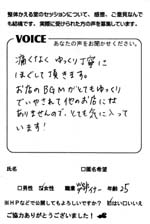 整体かえる堂のセッションについて、感想、ご意見なんで
も結構です。実際に受けられた方の声を募集しています。
VOICE
あなたの声をお聞かせください
痛くなく ゆっくり丁寧に
ほぐして頂きます。
お店のBGMがとてもゆっくり
でいやされて他のお店には
ありませんので、とても気に入って
います!
氏名
□匿名希望
□男性 女性 職業 webデザイナー 年齢 25
※HPなどで公開してもよろしいですか? はい□いいえ
ご協力ありがとうございました!